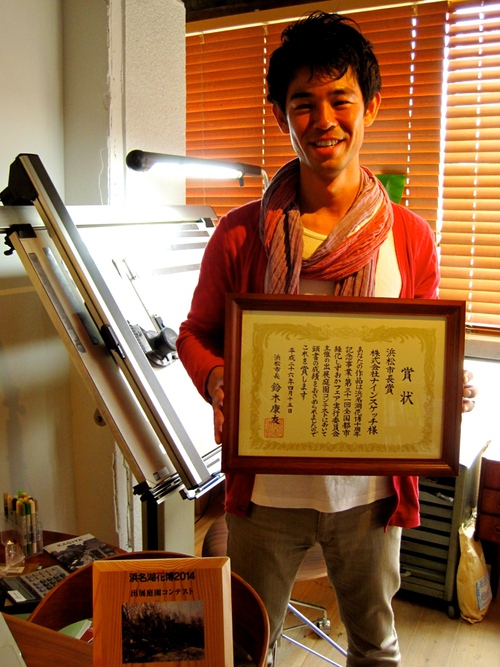 賞状
浜松市長賞
株式会社ナインスケッチ様
あなたの作品は浜名湖花博十周年
記念事業・第三十一回全国都市
緑化しずおかフェア実行委員会
主催の出展庭園コンテストにおいて
頭書の成績をおさめられましたので
これを賞します
平成二十六年四月十五日
浜松市長 鈴木康友
浜名湖花博2014
出展庭園コンテスト